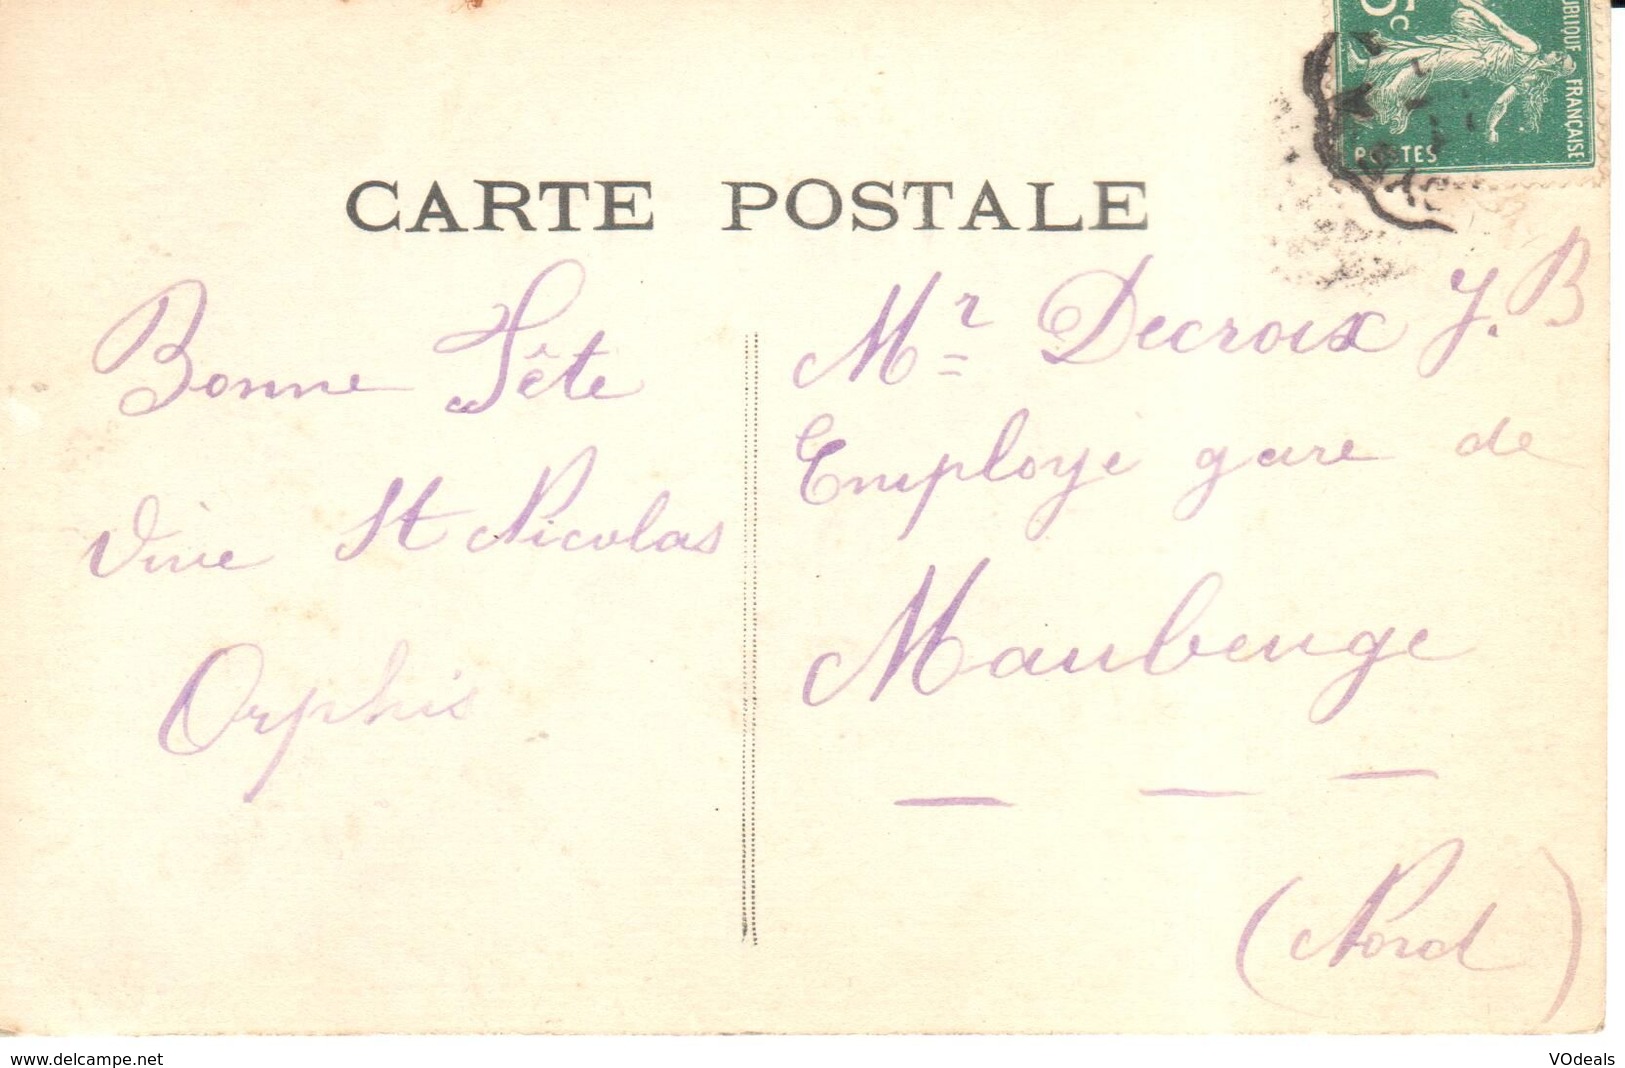 5c
RÉPUBLIQUE FRANÇAISE
POSTES
CARTE POSTALE
Bonne Fête
Vive St Nicolas
Orphis
Mr Decroix J.B
Employé gare de
Maubeuge
(Nord)
www.delcampe.net
VOdeals